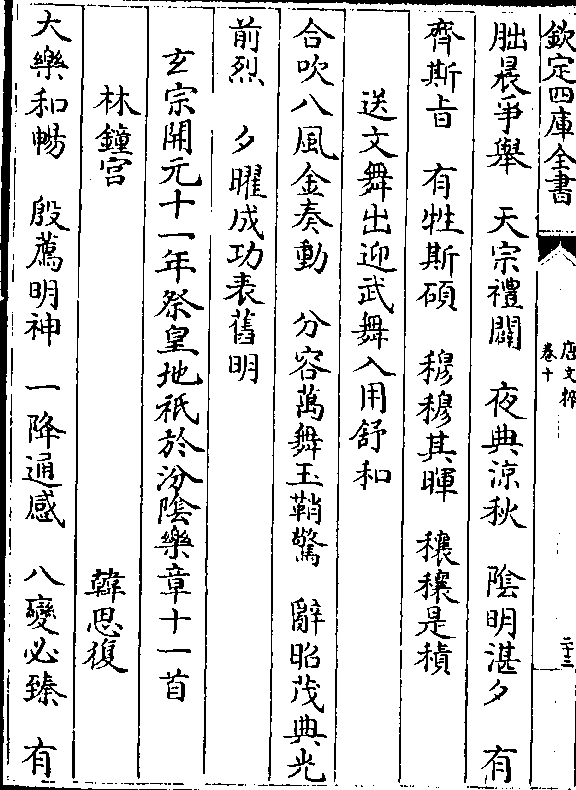 欽定四庫全書
唐文粹
卷十
二十三
朏晨爭舉 天宗禮闢 夜典涼秋 陰明湛夕 有
齊斯旨 有牲斯碩 穆穆其暉 穰穰是積
送文舞出迎武舞入用舒和
合吹八風金奏動 分容萬舞玉鞘驚 辭昭茂典光
前烈 夕曜成功表舊明
玄宗開元十一年祭皇地祇於汾陰樂章十一首
林鐘宫 韓思復
大樂和暢 殷薦明神 一降通感 八變必臻 有